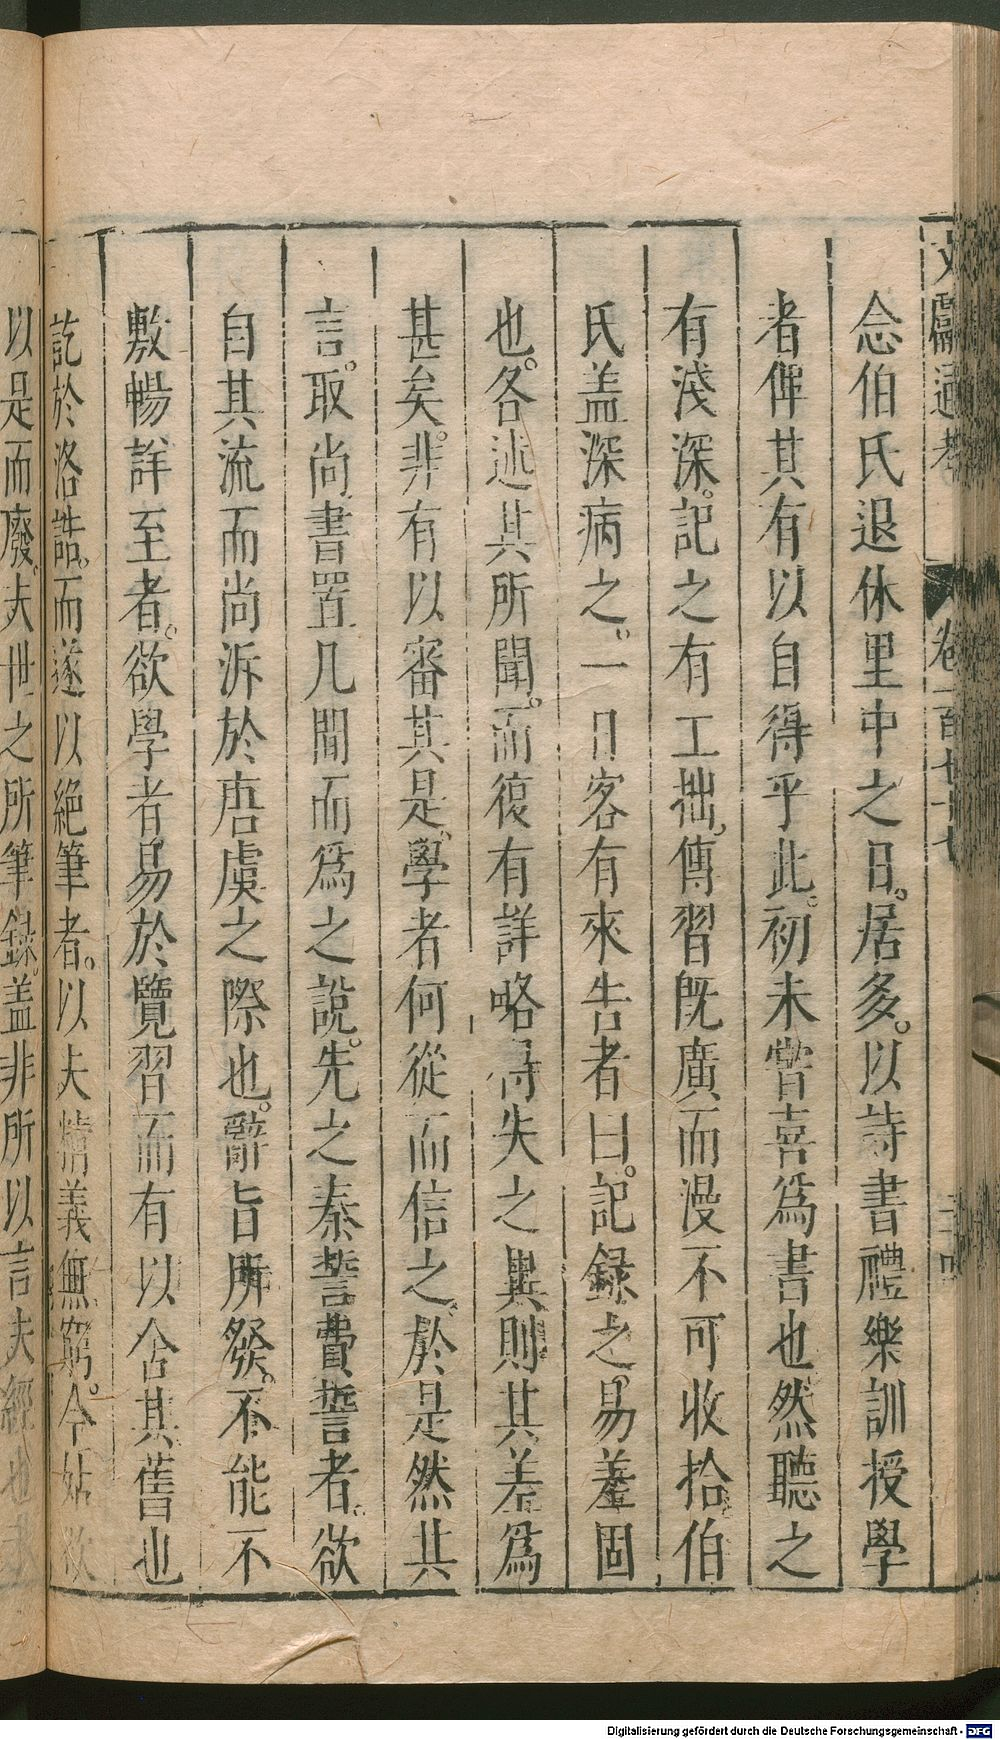 文獻通考 卷一百七十七
念伯氏退休里中之日。居多。以詩書禮樂訓授學
者俾其有以自得乎此。初未嘗喜爲書也然聽之
有淺深。記之有工拙。傳習既廣而漫不可收拾伯
氏盖深病之。一日客有來告者曰。記録之。易差固
也。各述其所聞。而復有詳略得失之異則其差爲
甚矣。非有以審其是。學者何從而信之。於是然其
言。取尚書置几間而爲之說。先之秦誓費誓者。欲
自其流而尚泝於唐虞之際也。辭旨所發。不能不
敷暢詳至者。欲學者易於覽習而有以舍其舊也
訖於洛誥。而遂以絕筆者。以夫精義無窮。今姑欲
以是而廢。夫世之所筆録。盖非所以言夫經也
Digitalisierung gefördert durch die Deutsche Forschungsgemeinschaft - DFG